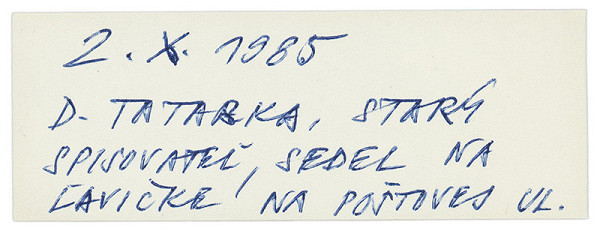 2. X. 1985
D. TATARKA, STARÝ
SPISOVATEĽ, SEDEL NA
ĽAVIČKE NA POŠTOVEJ UL.